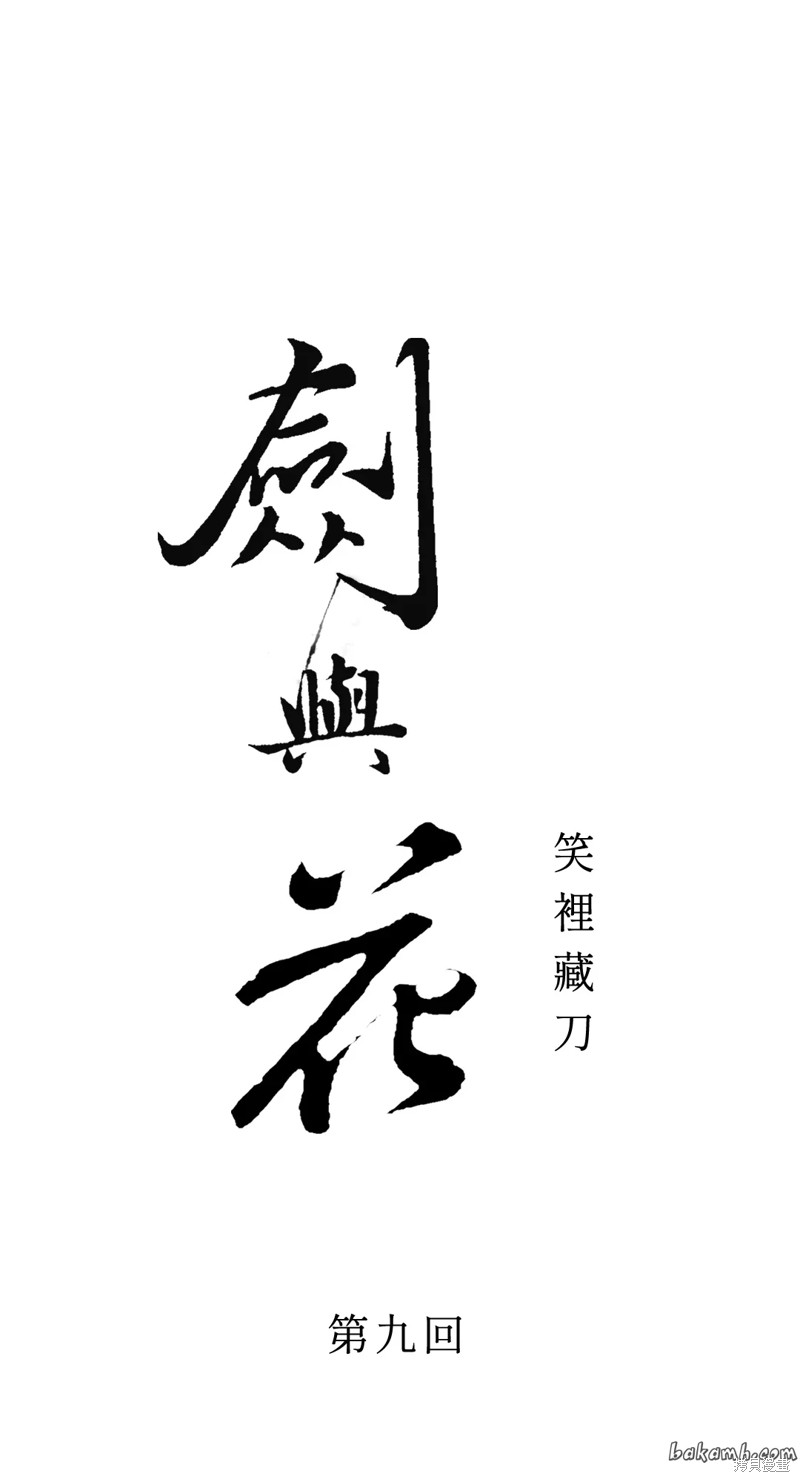 劍與花
笑裡藏刀
第九回
bakamh.com
拷貝漫畫